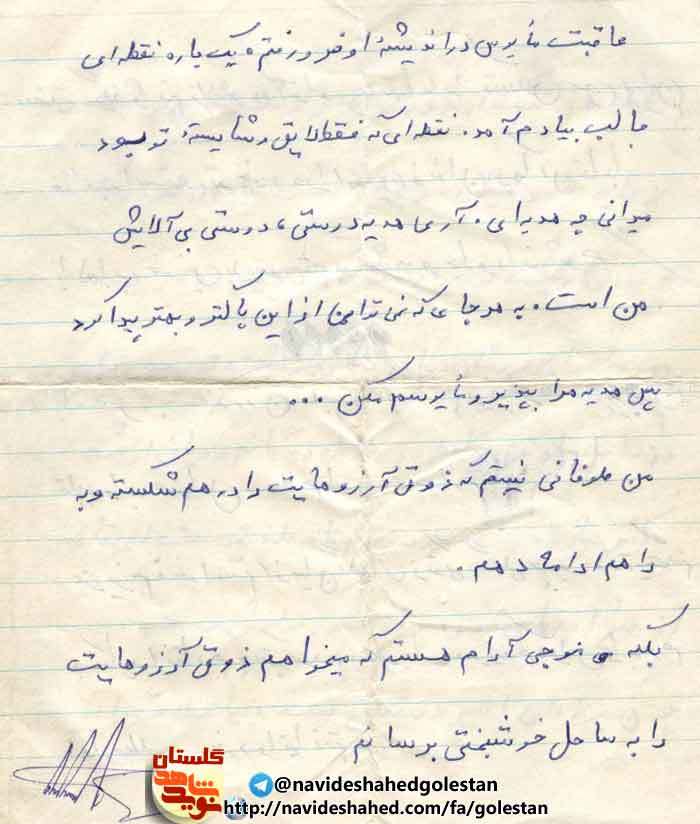 عاقبت مأیوس در اندیشهٔ او فرو رفتم که یک باره نقطه‌ای
جالب بیادم آمد. نقطه‌ای که فقط لایق و شایستهٔ تو بود
میدانی چه هدیه‌ای. آری هدیه دوستی، دوستی بی آلایش
من است. به هر جای که نمی‌توانی از این پاکتر و بهتر پیدا کرد
پس هدیه مرا بپذیر و مأیوسم مکن ...
من طوفانی نیستم که ذوق آرزوهایت را در هم شکسته و به
راهم ادامه دهم.
بلکه موجی آرام هستم که میخواهم ذوق آرزوهایت
را به ساحل خوشبختی برسانم
گلستان
نوید شاهد
@navideshahedgolestan
http://navideshahed.com/fa/golestan